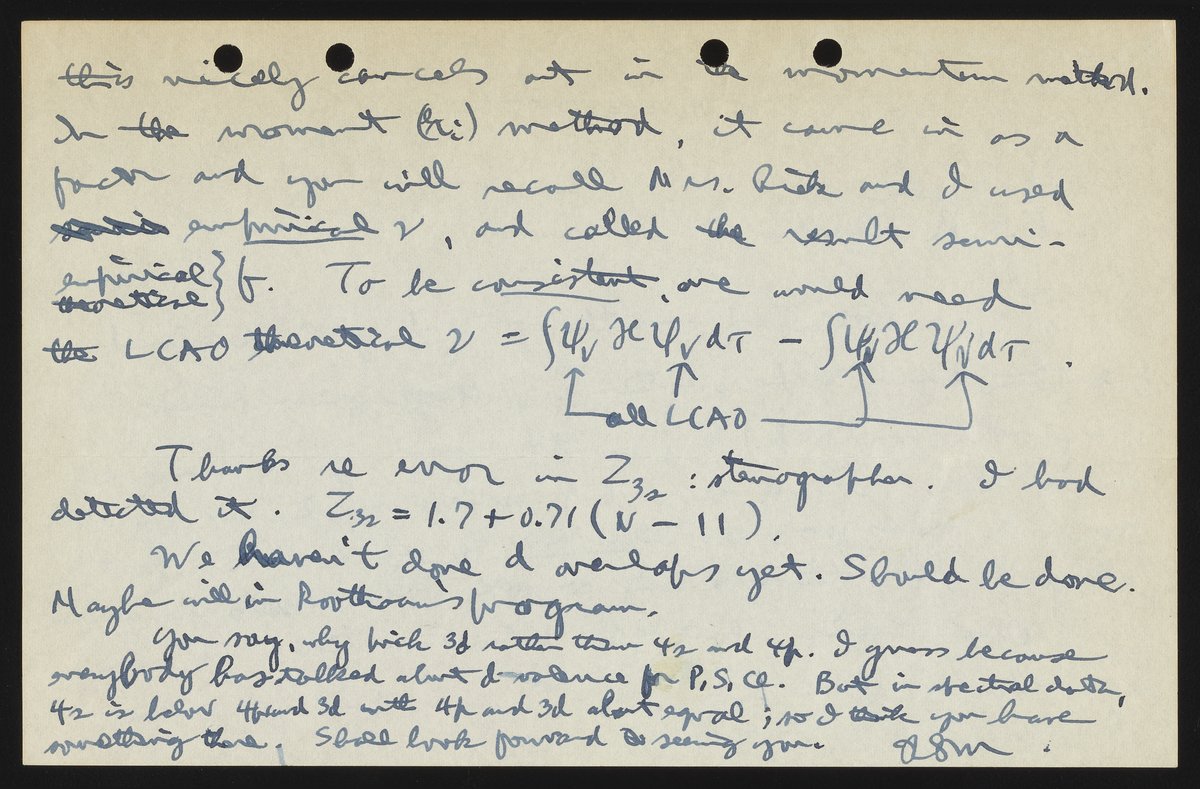 this nicely cancels out in the momentum method.
In the moment (Σri) method, it came in as a
factor and you will recall Mrs. Rieke and I used
empirical ν, and called the result semi-
empirical } f. To be consistent, one would need
theoretical
the LCAO theoretical ν = ∫ψV ℋ ψV dτ − ∫ψN ℋ ψN dτ .
all LCAO
Thanks re error in Z3s : stenographer. I had
detected it. Z3s = 1.7 + 0.71 (N − 11).
We haven't done d overlaps yet. Should be done.
Maybe will in Roothaan's program.
You say, why pick 3d rather than 4s and 4p. I guess because
everybody has talked about d-valence for P, S, Cl. But in spectral data,
4s is below 4p and 3d with 4p and 3d about equal; so I think you have
something there. Shall look forward to seeing you. RSM